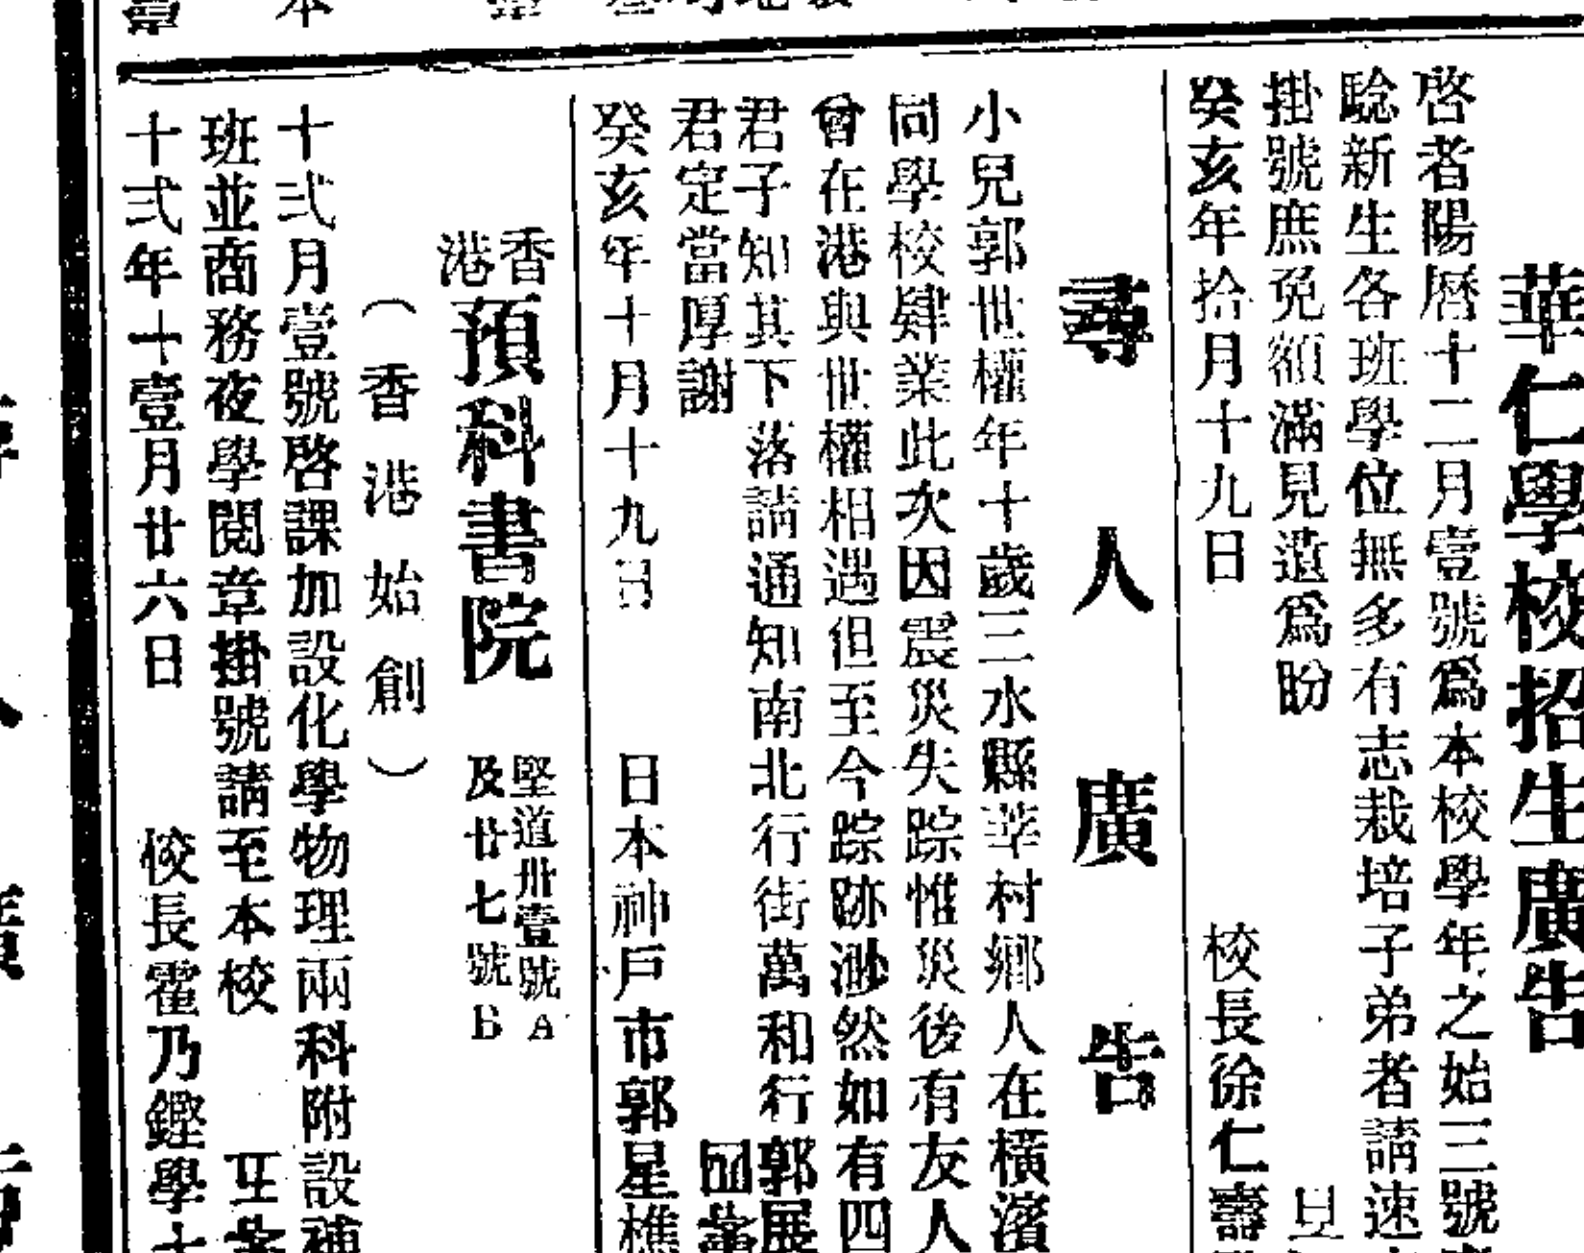 華仁學校招生廣告
啓者陽曆十二月壹號爲本校學年之始三號
騐新生各班學位無多有志栽培子弟者請速
掛號庶免額滿見遺爲盼
癸亥年拾月十九日 校長徐仁壽
尋人廣告
小兒郭世權年十歲三水縣莘村鄉人在橫濱
同學校肄業此次因震災失踪惟災後有友人
曾在港與世權相遇但至今踪跡渺然如有四
君子知其下落請通知南北行街萬和行郭展
君定當厚謝
癸亥年十月十九日 日本神戶市郭星樵
香港預科書院 堅道卅壹號A及廿七號B
(香港始創)
十弍月壹號啓課加設化學物理兩科附設補
班並商務夜學閱章掛號請至本校
十弍年十壹月廿六日 校長霍乃鏗學士